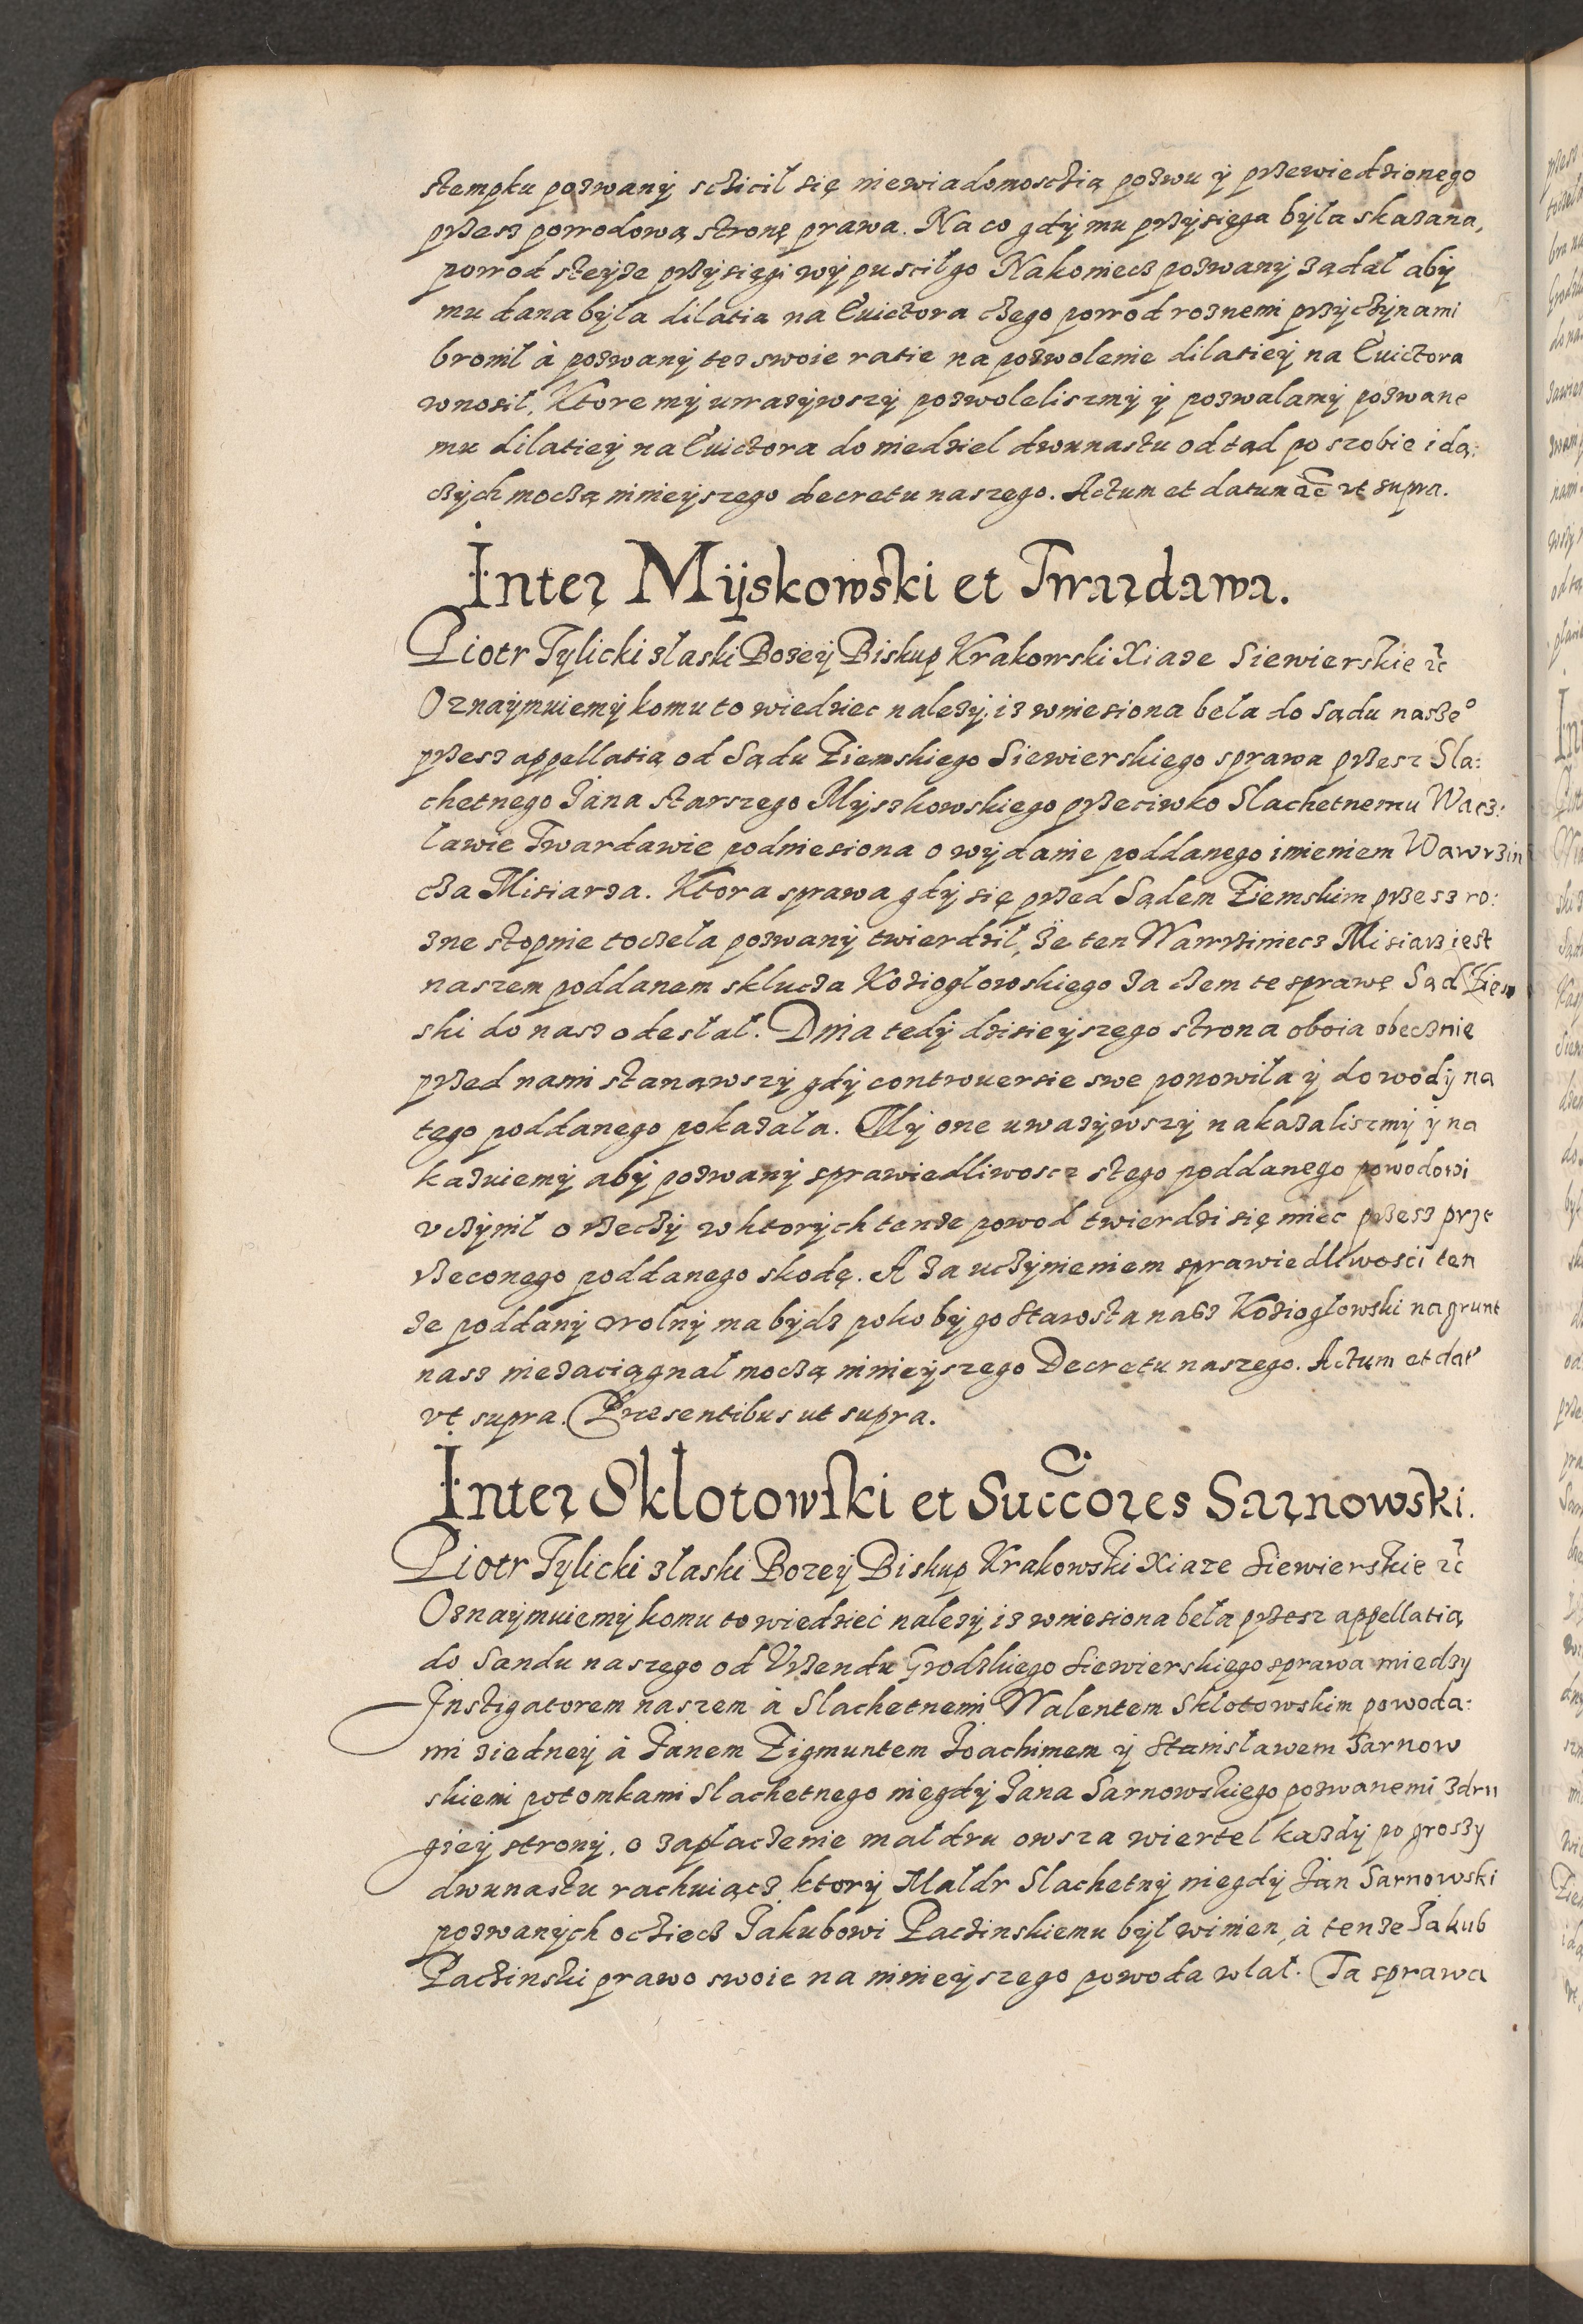 stempku pozwany sczicił się niewiadomosczią pozwu ÿ przewiedzionego
przesz powodową stronę prawa. Na co gdÿ mu przÿsięga była skazana,
powod steÿze przÿsięgi wÿpuscił go Nakoniecz pozwanÿ ządał abÿ
mu dana bÿla dilatia na Euictora czego powod roznemi przÿczÿnami
bronił à pozwanÿ tez swoie ratie na pozwolenie dilatieÿ na Euictora
wnosił, Ktore mÿ uwazÿwszÿ pozwoleliszmÿ ÿ pozwalamÿ pozwane
mu dilatieÿ na Euictora do niedziel dwunastu od tąd po szobie idą:
czÿch moczą ninieÿszego decretu naszego. Actum et datum ac vt supra.
Inter Mÿskowski et Twardawa.
Piotr Tylicki złaski Bozeÿ Biskup Krakowski Xiaze Siewierskie ꝛc
Oznaÿmuiemÿ komu to wiedziec nalezÿ, iz wniesiona beła do Sądu nasze°
przesz appellatią od Sądu Ziemskiego Siewierskiego sprawa przesz Sla:
chetnego Jana starszego Mÿszkowskiego przeciwko Slachetnemu Wacz:
ławie Twardawie podniesiona o wÿdanie poddanego imieniem Wawrzin
cza Misiarza. Ktora sprawa gdÿ się przed Sądem Ziemskim przesz ro:
zne stopnie toczeła pozwanÿ twierdził, ze ten Wawrziniecz Misiarz iest
naszem poddanem sklucza Koziogłowskiego za czem te sprawę Sąd Ziem
ski do nasz odesłał. Dnia tedÿ dzisieÿszego strona oboia obecznie
przed nami stanąwszÿ gdÿ controuersie swe ponowiła ÿ dowodÿ na
tego poddanego pokazała. Mÿ one uwazÿwszÿ nakazaliszmÿ ÿ na
kazuiemÿ abÿ pozwanÿ sprawiedliwoscz stego poddanego powodowi
vczÿnił o rzeczÿ w ktorÿch tenze powod twierdzi się miec przesz prze
rzeconego poddanego skodę. A za uczÿnieniem sprawiedliwości ten
ze poddanÿ wolnÿ ma bÿdz poko bÿ go Starosta nasz Koziogłowski na grunt
nasz niezaciągnał moczą ninieÿszego Decretu naszego. Actum et dat'
vt supra. Præsentibus ut supra.
Inter Skłotowski et Succores Sarnowski.
Piotr Tylicki złaski Bozeÿ Biskup Krakowski Xiaze Siewierskie ꝛc
Oznaÿmuiemÿ komu to wiedzieć nalezÿ iz wniesiona beła przesz appellatią
do Sandu naszego od Vrzendu Grodzkiego Siewierskiego sprawa miedzy
Instigatorem naszem à Slachetnemi Walentem Skłotowskim powoda:
mi ziedneÿ à Janem Zigmuntem Joachimem ÿ Stanisławem Sarnow
skiemi potomkami Slachetnego niegdÿ Jana Sarnowskiego pozwanemi zdru
gieÿ stronÿ, o zapłaczenie małdru owsza wiertel kazdÿ po groszy
dwunastu rachuiącz, ktorÿ Małdr Slachetnÿ niegdÿ Jan Sarnowski
pozwanÿch oczciecz Jakubowi Paczinskiemu bÿł winien, à tenze Jakub
Paczinski prawo swoie na ninieÿszego powoda wlał. Ta sprawa